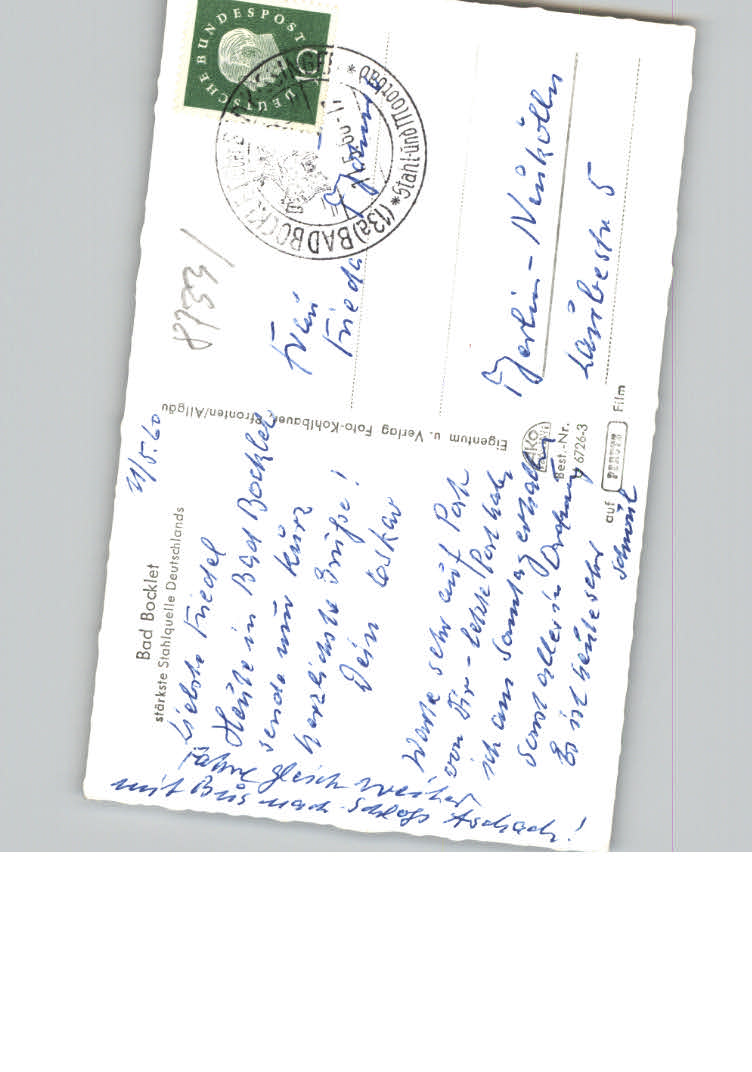 Bad Bocklet
stärkste Stahlquelle Deutschlands
21/5.60
Liebste Friedel
Heute in Bad Bocklet
sende nur kurz
herzlichste Grüße!
Dein Oskar
Warte sehr auf Post
von Dir - letzte Post habe
ich am Samstag erhalten
Sonst alles in Ordnung
Es ist heute sehr
schwül
Fahre gleich weiter
mit Bus nach Schloss Aschach!
Eigentum u. Verlag Foto-Kohlbauer, Pfronten/Allgäu
Ako
Best.-Nr.
A 6726-3
auf PERUTZ Film
DEUTSCHE BUNDESPOST
(13a) BAD BOCKLET
*Stahl-und Moorbad*
8733/
Frau
Frieda
Berlin-Neukölln
Laubestr 5